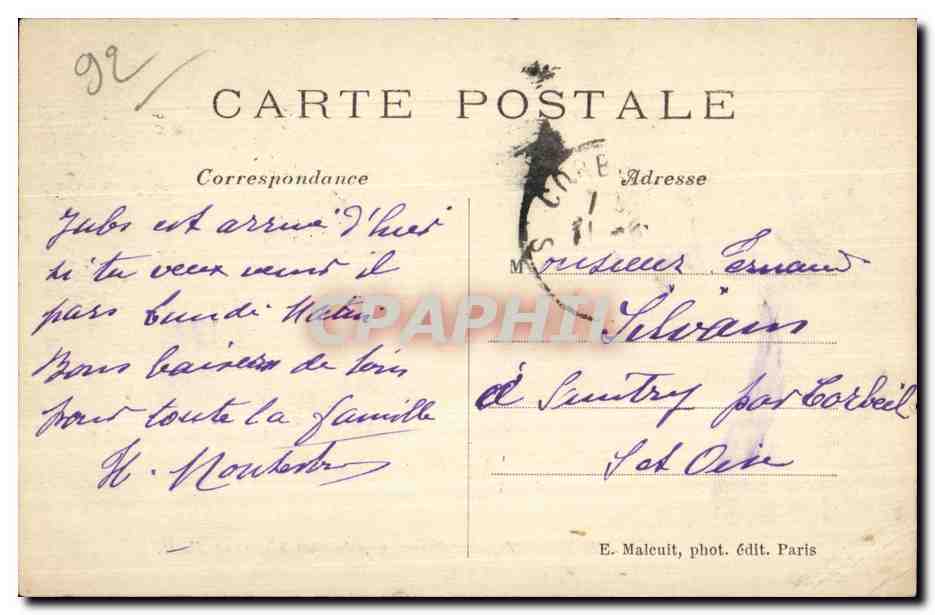 92
CARTE POSTALE
Correspondance
Adresse
Jules est arrivé d'hier
si tu veux venir il
pars Lundi Matin
Bons baisers de tous
pour toute la famille
H.
CORBE
S
Monsieur Fernand
Silvain
à Saintry par Corbeil
S et Oise
E. Malcuit, phot. édit. Paris
CPAPHIL